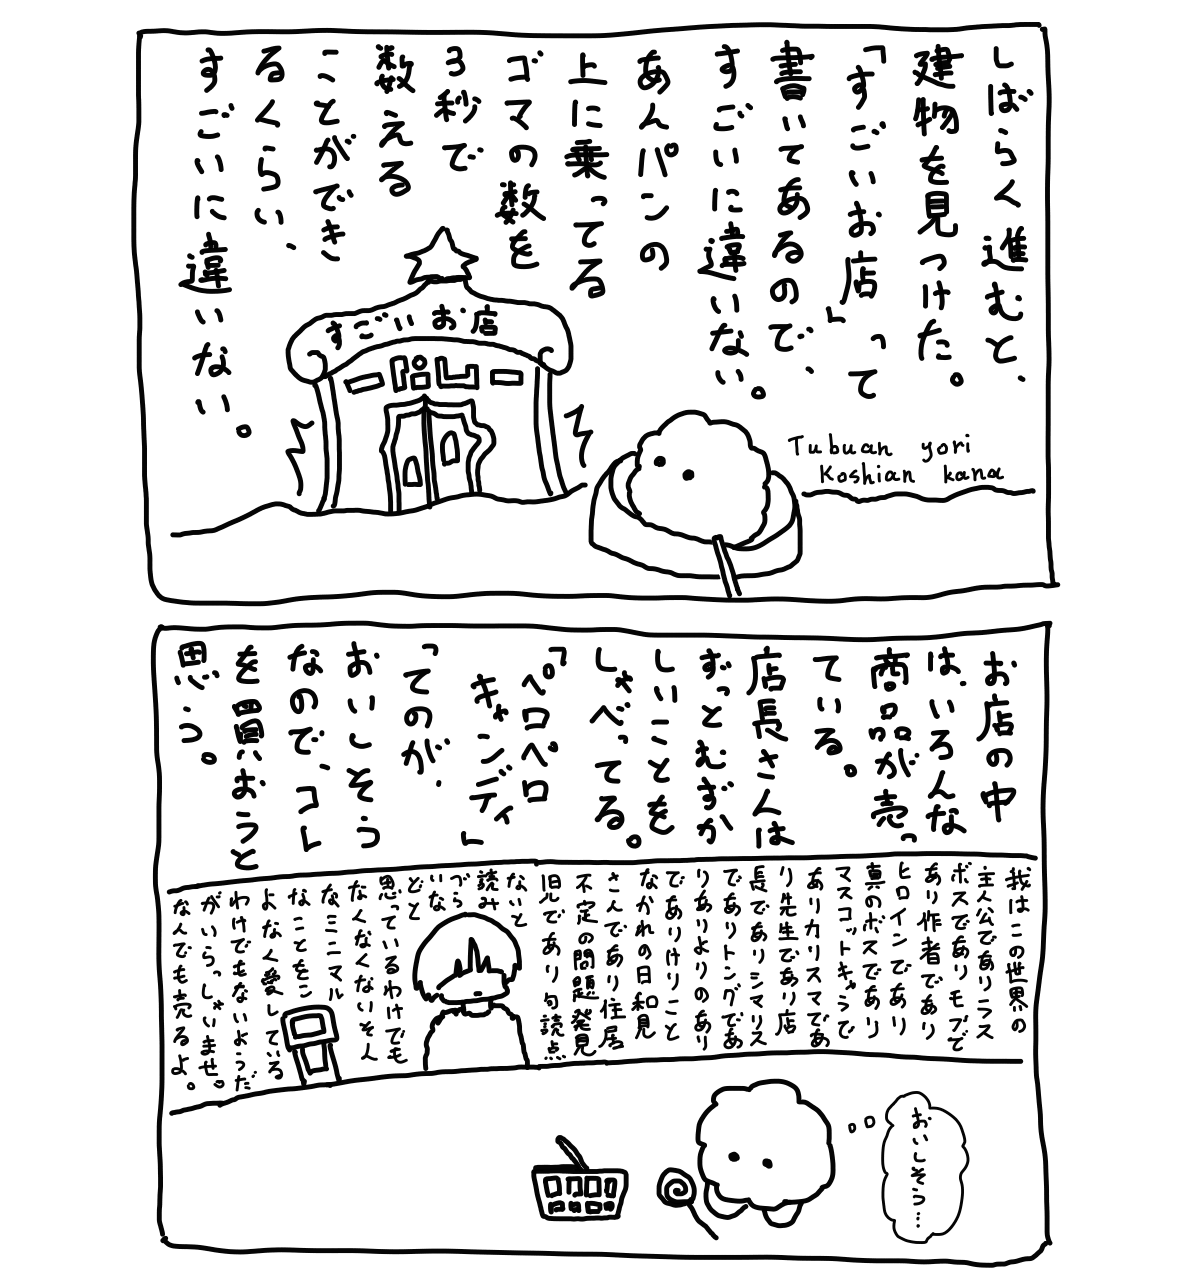 しばらく進むと、
建物を見つけた。
「すごいお店」って
書いてあるので、
すごいに違いない。
あんパンの
上に乗ってる
ゴマの数を
3秒で
数える
ことができ
るくらい、
すごいに違いない。
すごいお店
Tubuan yori
Koshian kana
お店の中
は、いろんな
商品が売っ
ている。
店長さんは
ずっとむずか
しいことを
しゃべってる。
「ペロペロ
キャンディ」
ってのが、
おいしそう
なので、コレ
を買おうと
思う。
我はこの世界の
主人公でありラス
ボスでありモブで
あり作者であり
ヒロインであり
真のボスであり
マスコットキャラで
ありカリスマであ
り先生であり店
長でありシマリス
でありトングであ
りありよりのあり
でありけりこと
なかれの日和見
さんであり住居
不定の問題発見
児であり句読点
ないと
読み
づら
いな
どと
思っているわけでも
なくなくないそん
なミニマル
なことをこ
よなく愛している
わけでもないようだ
がいらっしゃいませ。
なんでも売るよ。
おいしそう…